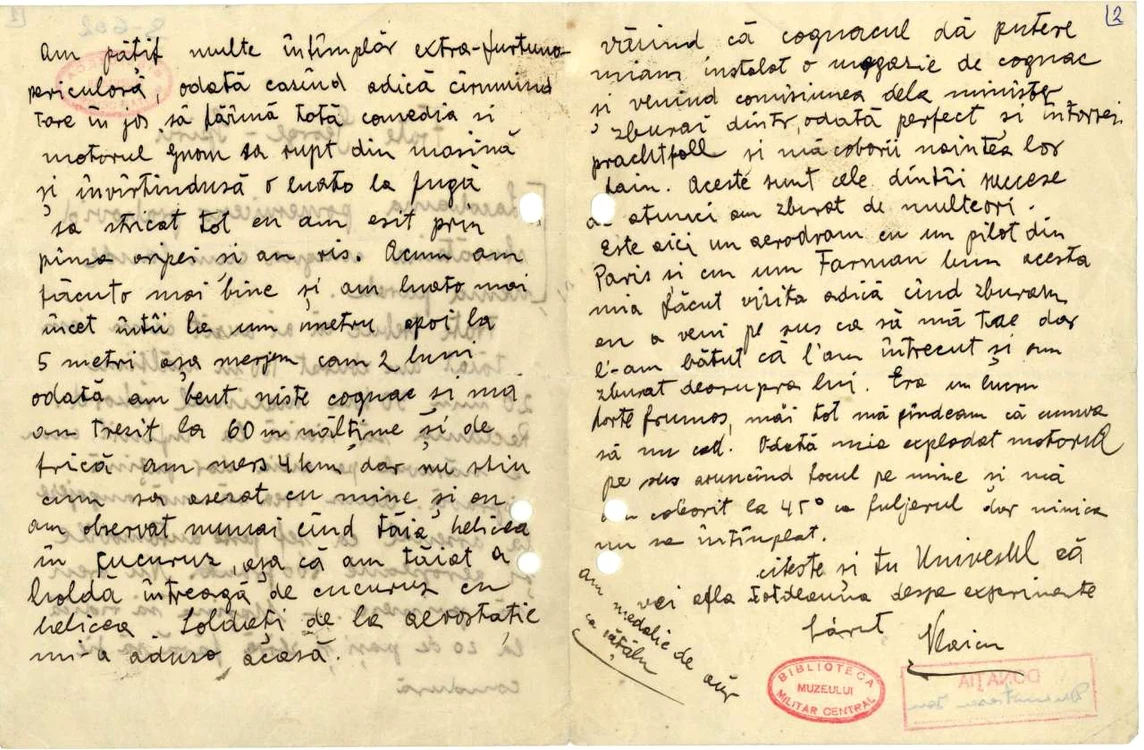 2
am pățit multe întîmplăr extra-furtuno
periculoră, odată carînd adică cîrmuind
tare în jos să fărîmă totă comedia si
motorul gnom sa rupt din masină
și învîrtindusă o luato la fugă
sa stricat tot eu am esit prin
pînza aripei si an ris. Acum am
făcuto mai bine și am luato mai
incet întîi la um metru apoi la
5 metri așa merjem cam 2 luni
odată am beut niste cognac si mă
am tresit la 60 m nălțime și de
frică am mers 4 km, dar nu stiu
cum sa asezat cu mine și eu
am observat numai cînd tăia helicea
în cucuruz, așa că am tăiat o
holdă întreagă de cucuruz cu
helicea. Soldați de la aerostație
mi-a aduso acasă.
văzind că cognacul dă putere
miam instalat o magazie de cognac
si venind comisiunea dela minister
zburai dintr,odată perfect și întorsei
prachtfoll si mă coborii naintea lor
lain. Aceste sunt cele dintîi succese
atunci am zburat de multeori.
Este aici un aerodrom cu un pilot din
Paris și cu um Farman bun acesta
mia făcut vizita adică cînd zburam
eu a veni pe sus ca să mă tae dar
l'-am bătut că l'am întrecut și am
zburat deasupra lui. Era un lucru
forte frumos, măi tot mă gîndeam că cumva
să nu cad. Odată mia explodat motorul
pe sus aruncînd focul pe mine si mă
am coborit la 45° ca fuljerul dar nimica
nu sa întîmplat.
citeste și tu Universul că
vei afla totdeauna despre experimente
Vlaicu
am medalie de aur
BIBLIOTECA
MUZEULUI
MILITAR CENTRAL
DONAȚIA